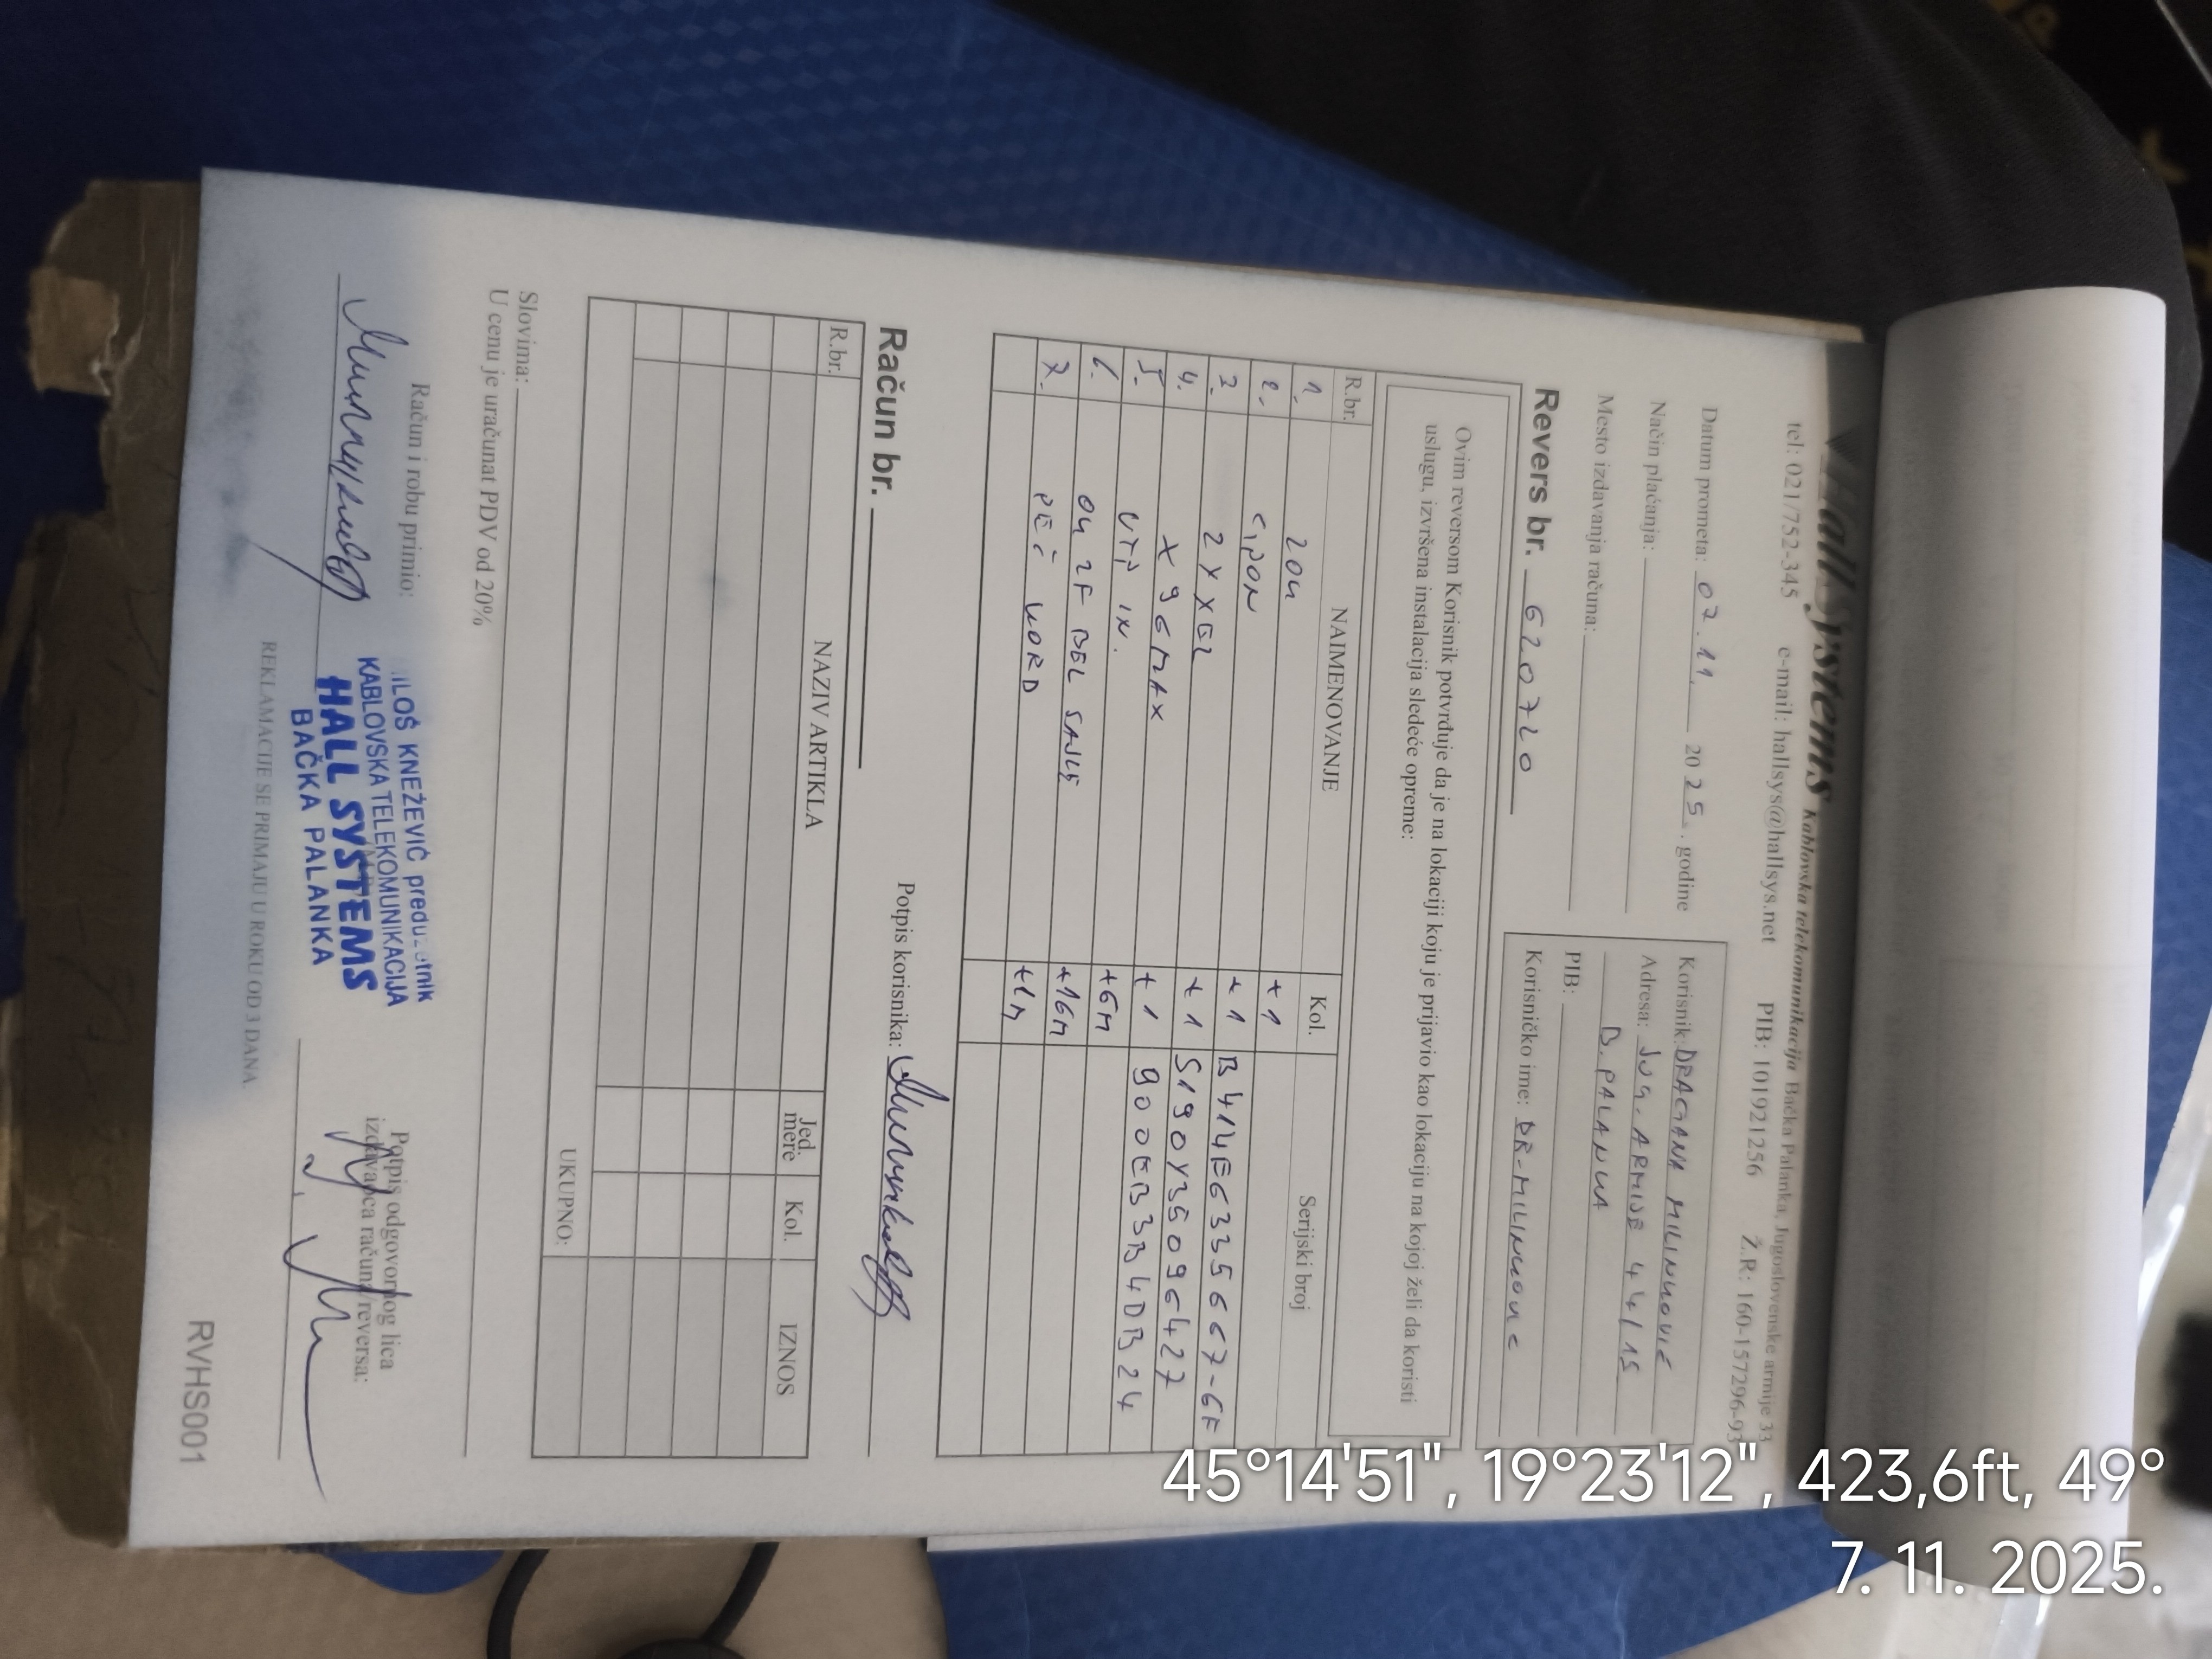 HallSystems Kablovska telekomunikacija Bačka Palanka, Jugoslovenske armije 33
tel: 021/752-345 e-mail: hallsys@hallsys.net PIB: 101921256 Ž.R: 160-157296-93
Datum prometa: 07.11. 2025. godine
Način plaćanja:
Mesto izdavanja računa:
Korisnik: DRAGANA MILINKOVIĆ
Adresa: JUG. ARMIJE 44/15
B. PALANKA
PIB:
Korisničko ime: DR-MILINKOVIC
Revers br. 620720
Ovim reversom Korisnik potvrđuje da je na lokaciji koju je prijavio kao lokaciju na kojoj želi da koristi
uslugu, izvršena instalacija sledeće opreme:
R.br. NAIMENOVANJE Kol. Serijski broj
1. ZOK +1
2. GPON +1 B414E6335667-6F
3. ZYXEL +1 S190Y35096427
4. X96MAX +1 900EB3B4DB24
5. UTP IN. +6M
6. OK 2F BEL SAJLE +16M
7. PEČ KORD +1M
Potpis korisnika:
Račun br.
R.br. NAZIV ARTIKLA Jed. mere Kol. IZNOS
UKUPNO:
Slovima:
U cenu je uračunat PDV od 20%
Račun i robu primio:
Potpis odgovornog lica
izdavaoca računa/reversa:
ILOŠ KNEŽEVIĆ preduzetnik
KABLOVSKA TELEKOMUNIKACIJA
HALL SYSTEMS
BAČKA PALANKA
REKLAMACIJE SE PRIMAJU U ROKU OD 3 DANA
RVHS001
45°14'51", 19°23'12", 423,6ft, 49°
7. 11. 2025.